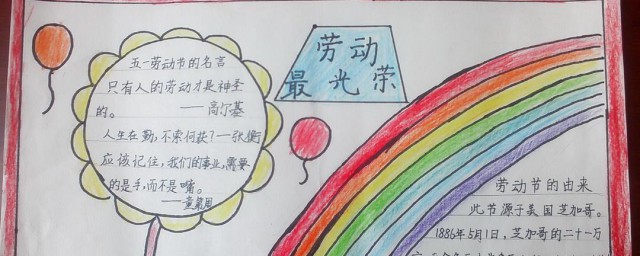 劳动
最光荣
五一劳动节的名言
只有人的劳动才是神圣
的。
——高尔基
人生在勤,不索何获?—张衡
应该记住,我们的事业,需要
的是手,而不是嘴。
——童第周
劳动节的由来
此节源于美国芝加哥。
1886年5月1日,芝加哥的二十一万